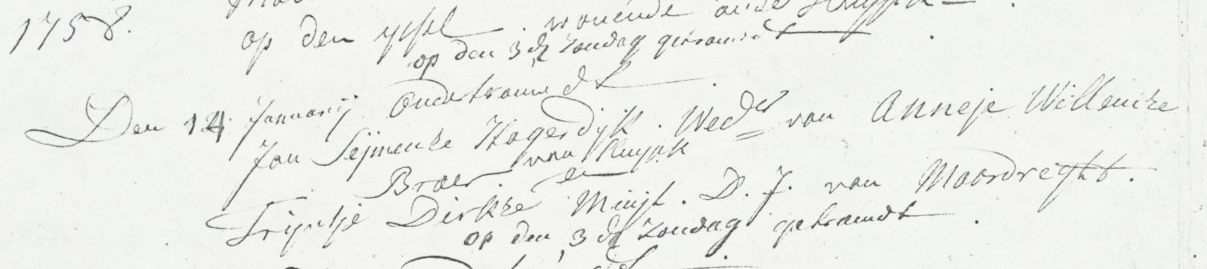 1758.
op den ijssel wonende onde
op den 3 de zondag getrouwdt
Den 14 Januarij Ondertrouwdt
Jan Sijmense Hogerdijk. Wed.r van Anneje Willemse
Broer van Kuijck
en
Trijntje Dirkse Muijt. D. J. van Moordreght.
op den 3 de zondag getrouwdt